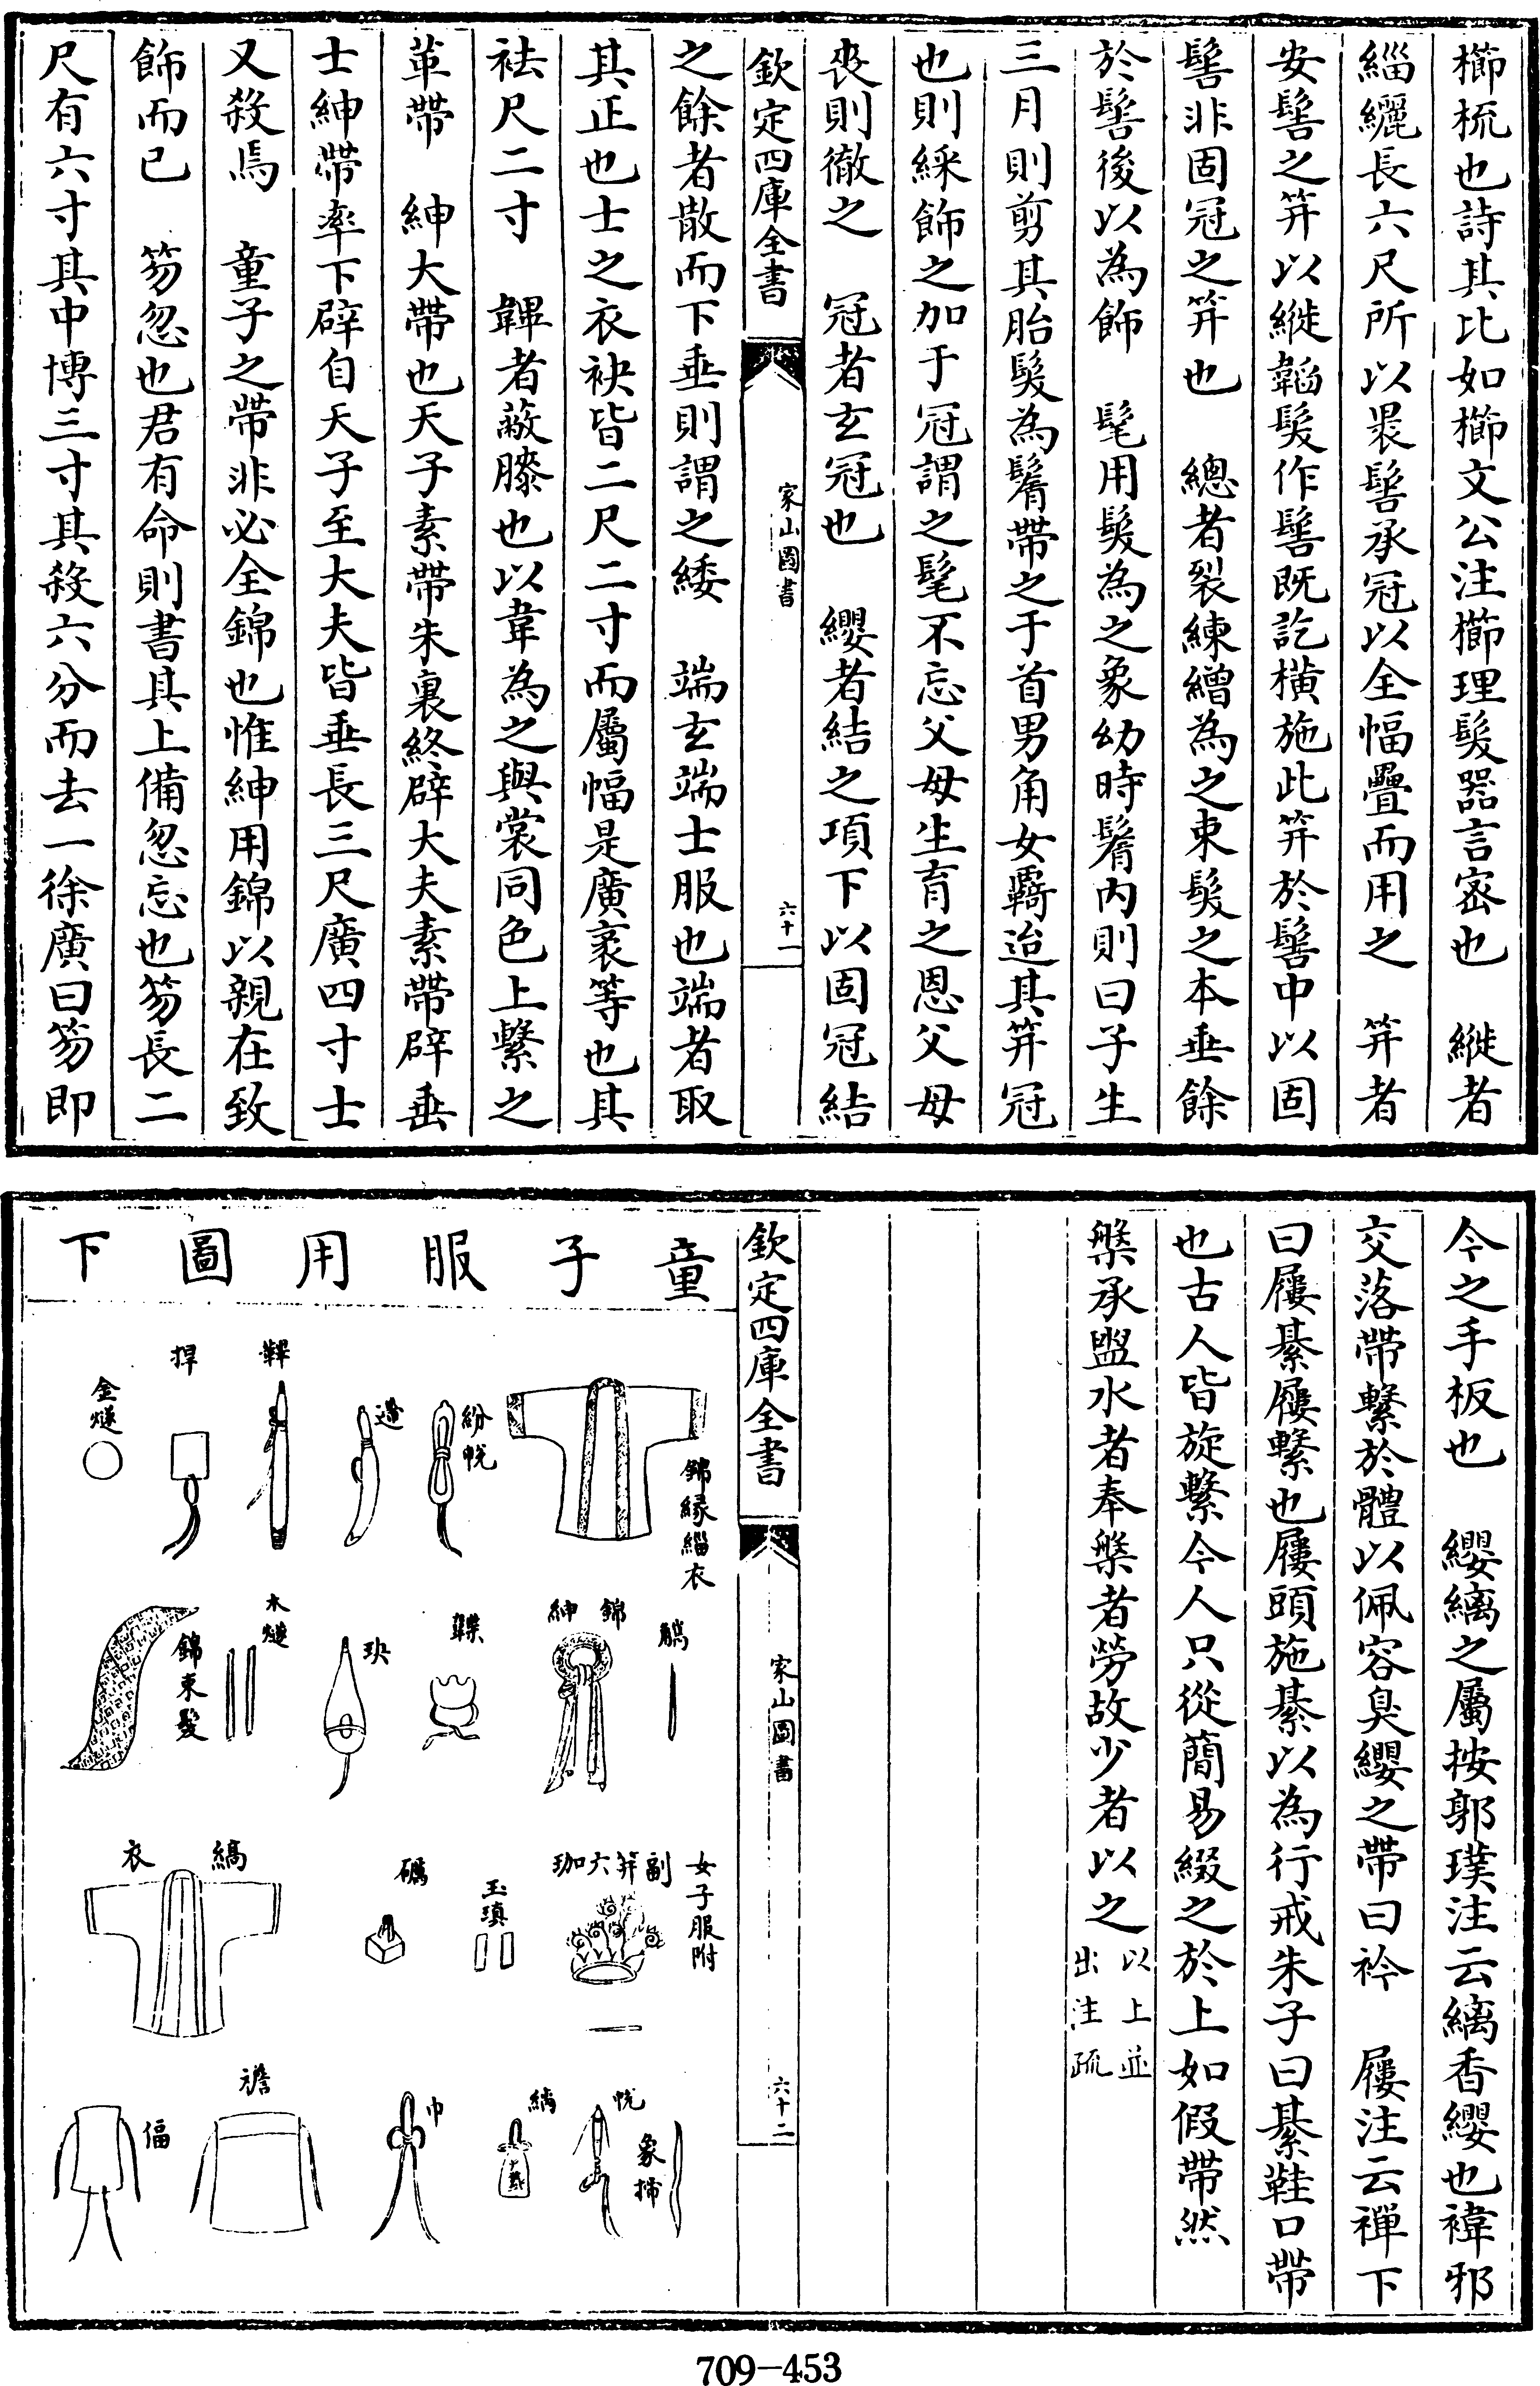 櫛梳也詩其比如櫛文公注櫛理髮器言密也　縰者
緇纚長六尺所以裹髻承冠以全幅疊而用之　笄者
安髻之笄以縰韜髮作髻既訖橫施此笄於髻中以固
髻非固冠之笄也　總者裂練繒為之束髮之本垂餘
於髻後以為飾　髦用髮為之象幼時鬌內則曰子生
三月則剪其胎髮為鬌帶之于首男角女羈迨其笄冠
也則綵飾之加于冠謂之髦不忘父母生育之恩父母
喪則徹之　冠者玄冠也　纓者結之項下以固冠結
欽定四庫全書
家山圖書
六十一
之餘者散而下垂則謂之緌　端玄端士服也端者取
其正也士之衣袂皆二尺二寸而屬幅是廣袤等也其
袪尺二寸　韠者蔽膝也以韋為之與裳同色上繫之
革帶　紳大帶也天子素帶朱裏終辟大夫素帶辟垂
士紳帶率下辟自天子至大夫皆垂長三尺廣四寸士
又殺焉　童子之帶非必全錦也惟紳用錦以親在致
飾而已　笏忽也君有命則書其上備忽忘也笏長二
尺有六寸其中博三寸其殺六分而去一徐廣曰笏即
今之手板也　纓縭之屬按郭璞注云縭香纓也褘邪
交落帶繫於體以佩容臭纓之帶曰衿　屨注云禪下
曰屨綦屨繫也屨頭施綦以為行戒朱子曰綦鞋口帶
也古人皆旋繫今人只從簡易綴之於上如假帶然
槃承盥水者奉槃者勞故少者以之
以上並
出注疏
欽定四庫全書
家山圖書
六十二
童子服用圖下
錦緣緇衣
紛帨
遰
鞞
捍
金燧
觿
錦紳
韘
玦
木燧
錦束髮
女子服附
副笄六珈
玉瑱
礪
縞衣
象揥
帨
縭
巾
襜
偪
709-453